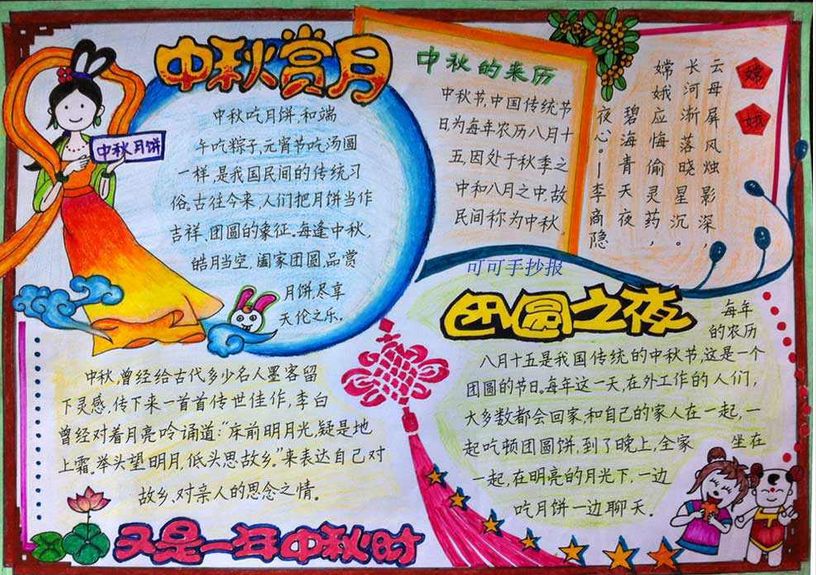 中秋赏月
中秋月饼
中秋吃月饼,和端
午吃粽子,元宵节吃汤圆
一样,是我国民间的传统习
俗。古往今来,人们把月饼当作
吉祥、团圆的象征。每逢中秋,
皓月当空,阖家团圆,品赏
月饼,尽享
天伦之乐。
中秋的来历
中秋节,中国传统节
日为每年农历八月十
五,因处于秋季之
中和八月之中,故
民间称为中秋。
嫦娥
云母屏风烛影深,
长河渐落晓星沉。
嫦娥应悔偷灵药,
碧海青天夜
夜心。——李商隐
可可手抄报
团圆之夜
每年
的农历
八月十五是我国传统的中秋节,这是一个
团圆的节日。每年这一天,在外工作的人们,
大多数都会回家,和自己的家人在一起,一
起吃顿团圆饼,到了晚上,全家 坐在
一起,在明亮的月光下,一边
吃月饼一边聊天.
中秋,曾经给古代多少名人墨客留
下灵感,传下来一首首传世佳作,李白
曾经对着月亮吟诵道:“床前明月光,疑是地
上霜.举头望明月,低头思故乡。”来表达自己对
故乡,对亲人的思念之情。
又是一年中秋时